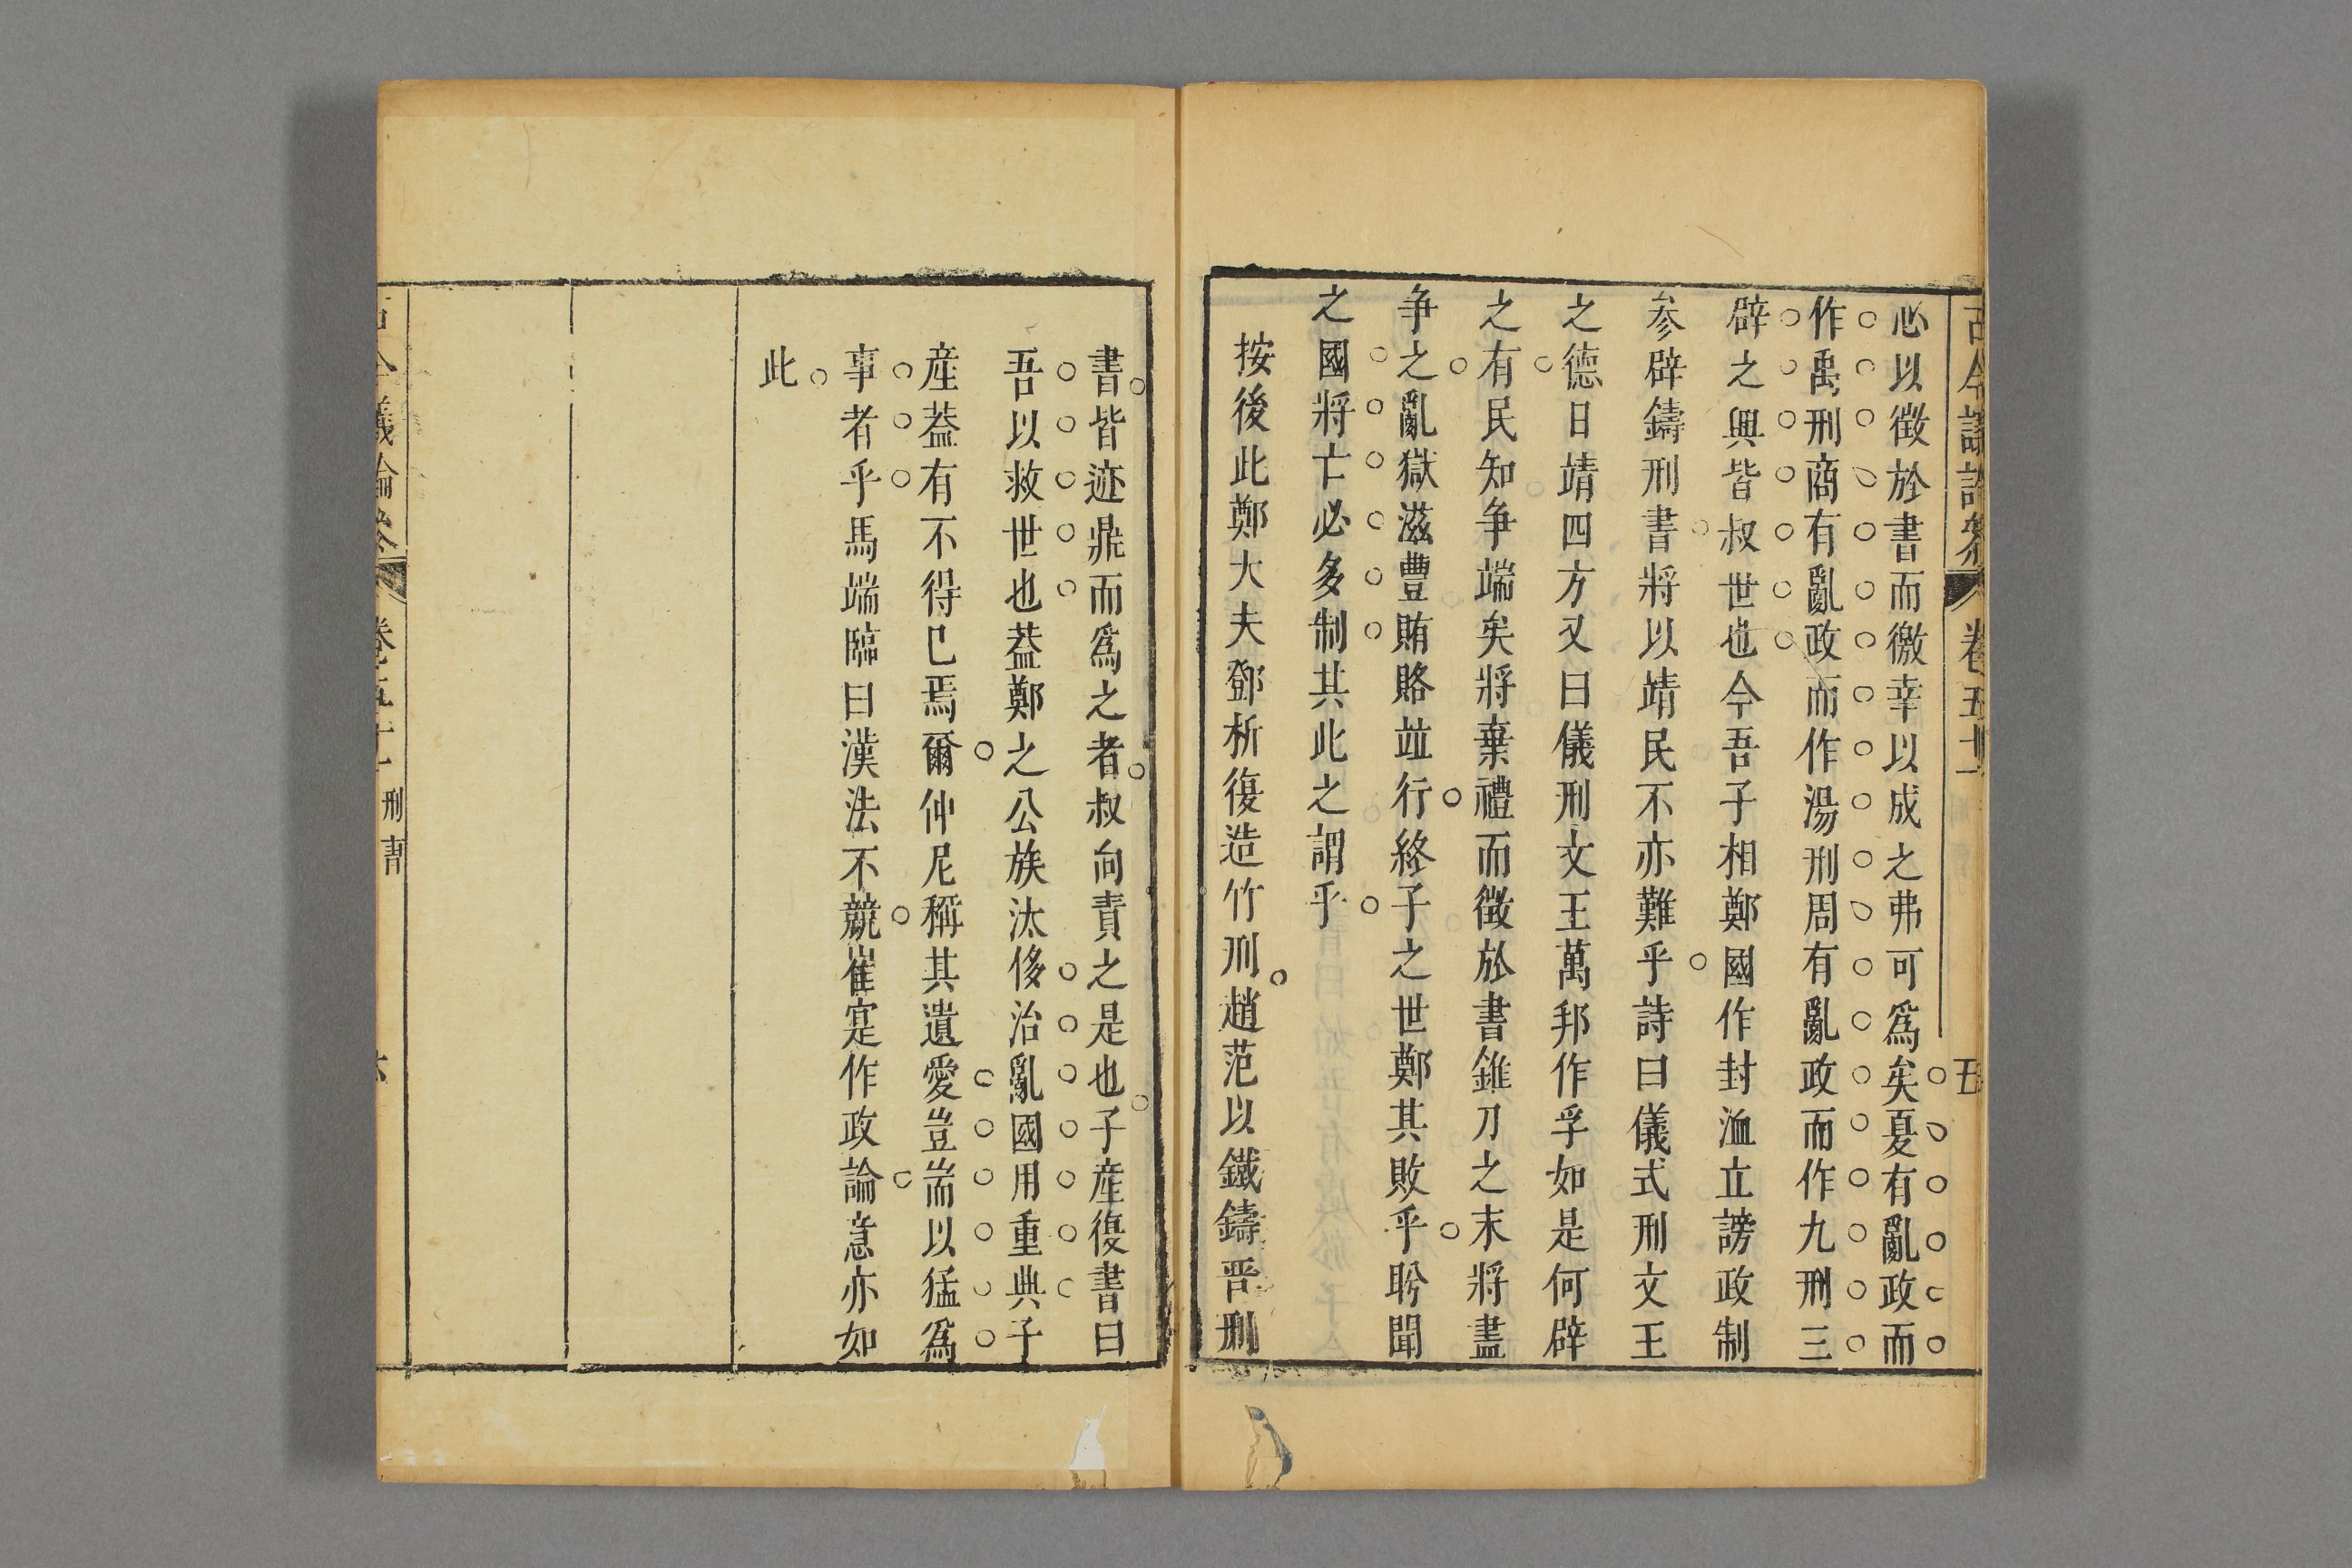 古今議論參 卷五十一 五
必以徵於書而徼幸以成之弗可爲矣夏有亂政而
作禹刑商有亂政而作湯刑周有亂政而作九刑三
辟之興皆叔世也今吾子相鄭國作封洫立謗政制
参辟鑄刑書將以靖民不亦難乎詩曰儀式刑文王
之德日靖四方又曰儀刑文王萬邦作孚如是何辟
之有民知争端矣將棄禮而徵於書錐刀之末將盡
争之亂獄滋豐賄賂並行終子之世鄭其敗乎肸聞
之國將亡必多制其此之謂乎
按後此鄭大夫鄧析復造竹刑趙范以鐵鑄晋刑
書皆迹鼎而爲之者叔向責之是也子產復書曰
吾以救世也葢鄭之公族汰侈治亂國用重典子
產葢有不得已焉爾仲尼稱其遺愛豈耑以猛爲
事者乎馬端臨曰漢法不競崔寔作政論意亦如
此
古今議論參 卷五十一 刑書 六